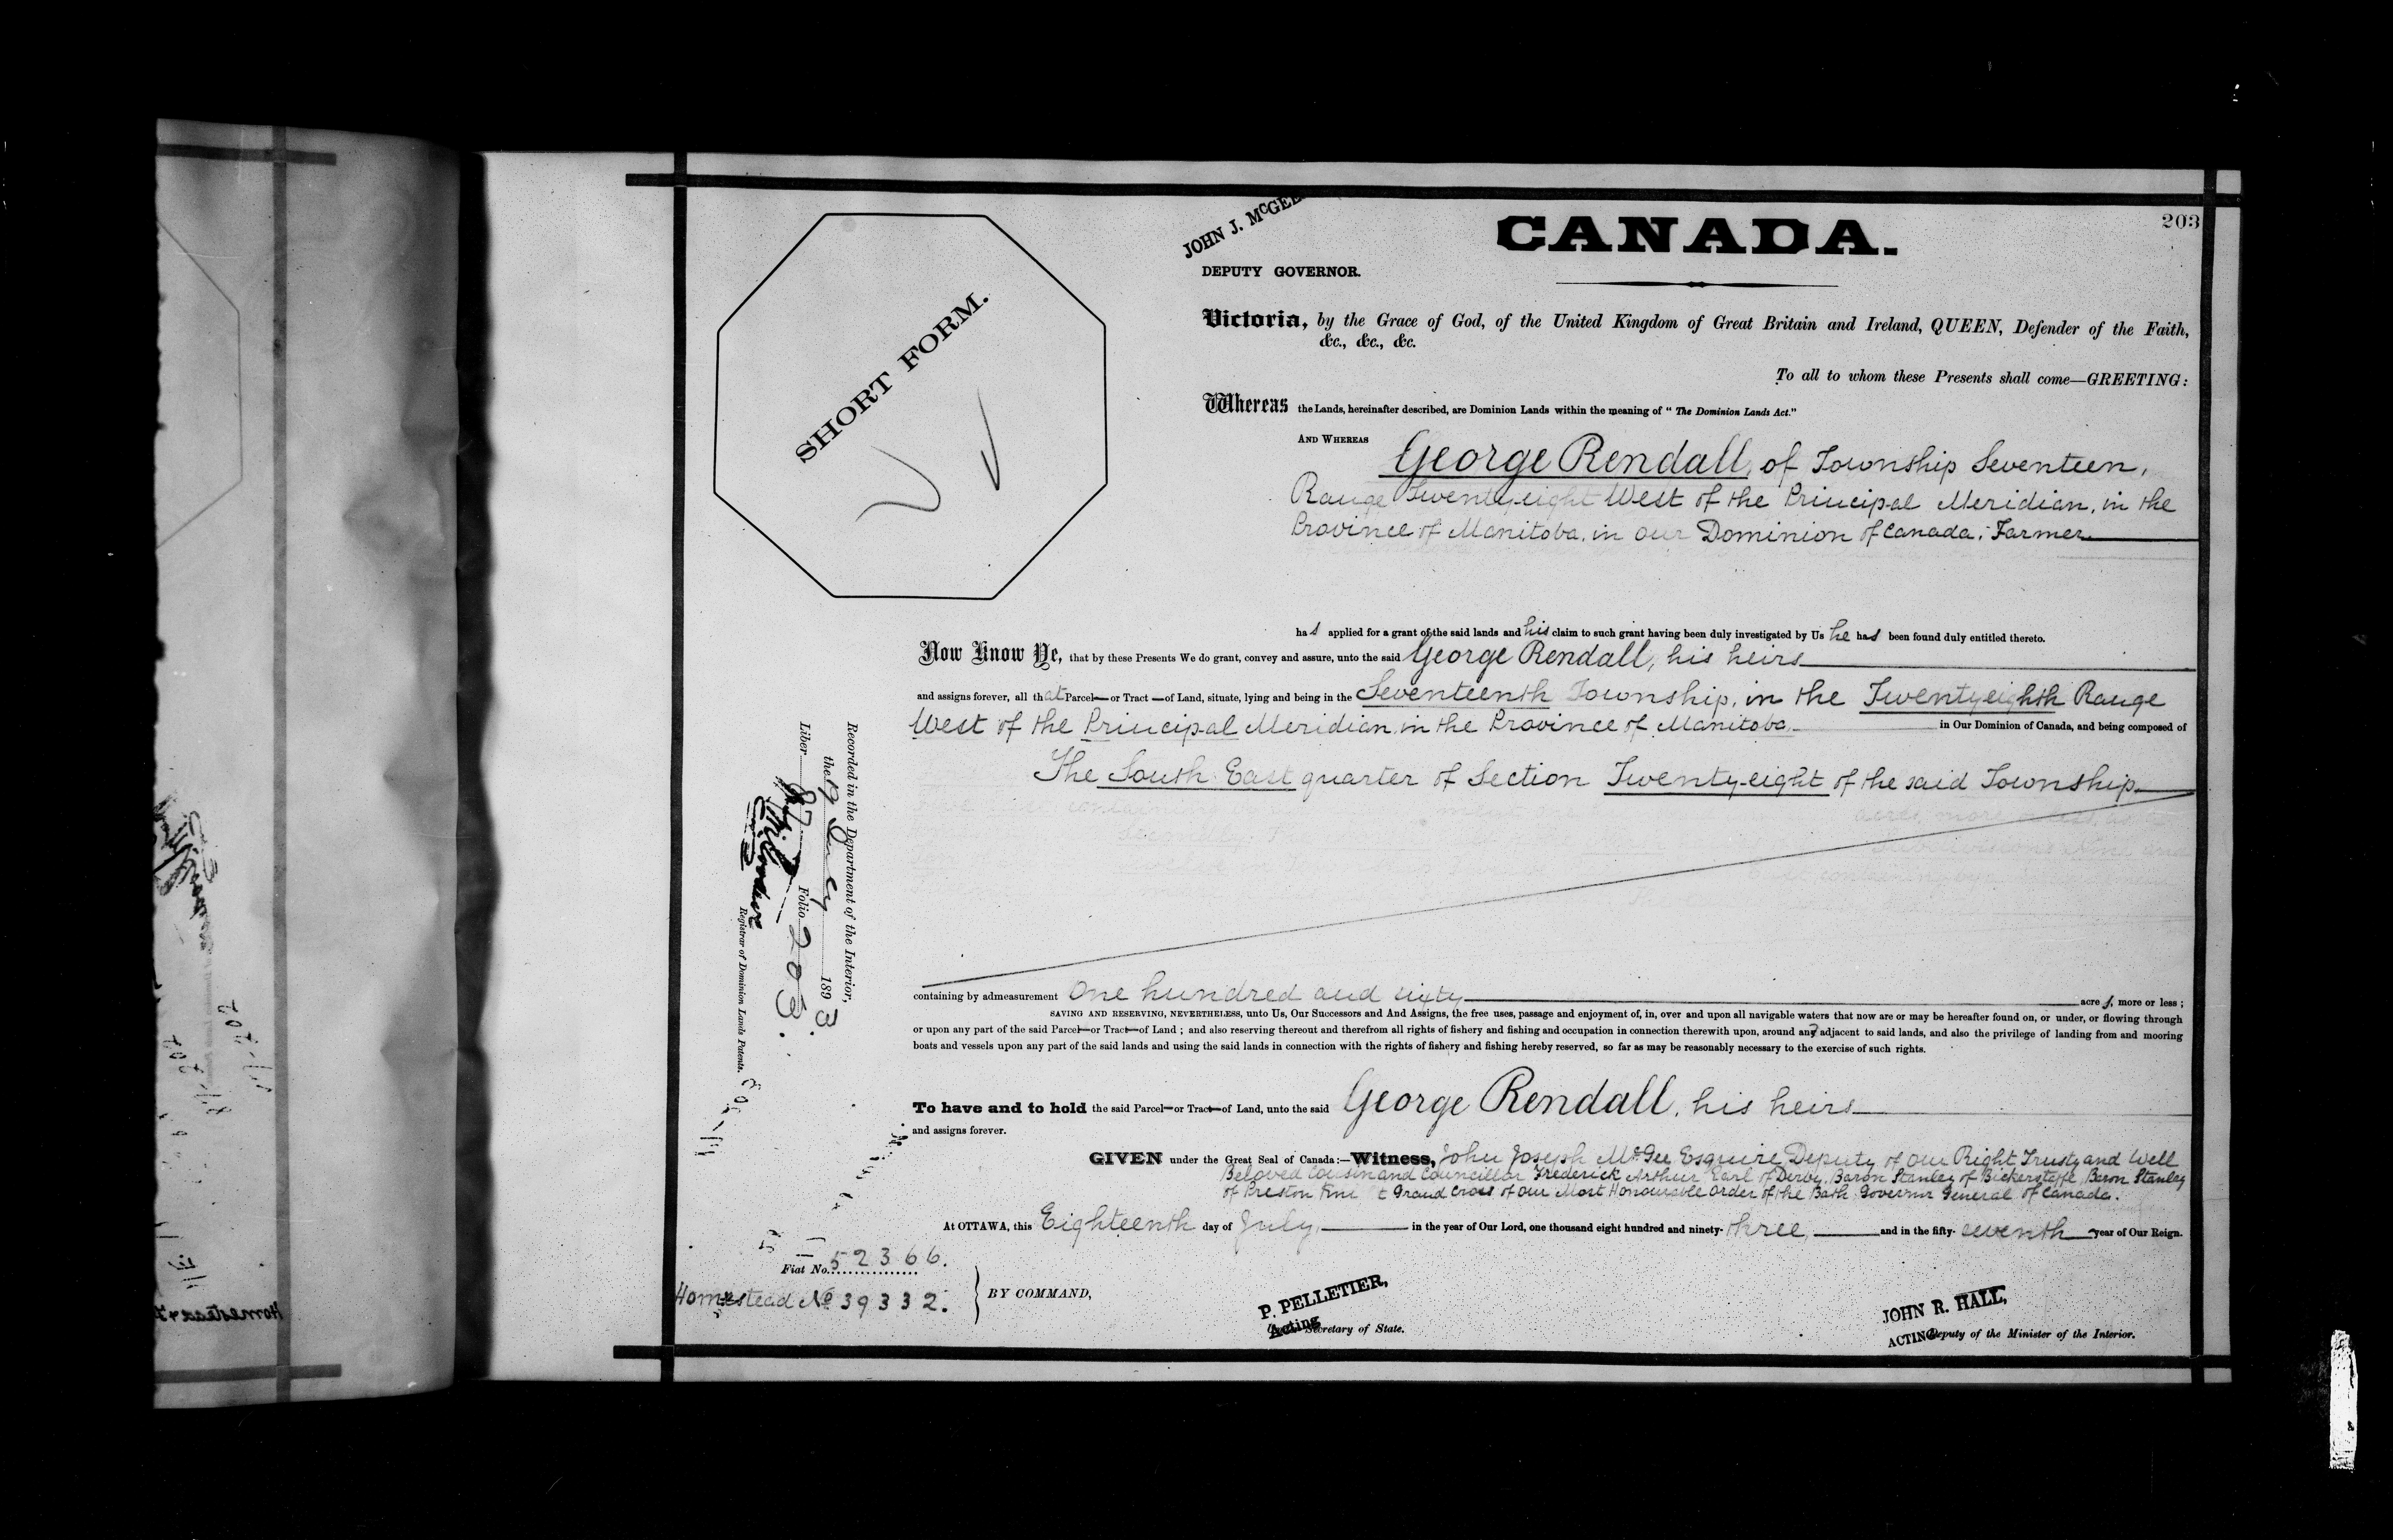 203
JOHN J. McGEE
CANADA.
DEPUTY GOVERNOR.
SHORT FORM.
Victoria, by the Grace of God, of the United Kingdom of Great Britain and Ireland, QUEEN, Defender of the Faith,
&c., &c., &c.
To all to whom these Presents shall come—GREETING:
Whereas the Lands, hereinafter described, are Dominion Lands within the meaning of "The Dominion Lands Act."
AND WHEREAS George Rendall, of Township Seventeen,
Range Twenty-eight West of the Principal Meridian, in the
Province of Manitoba, in our Dominion of Canada, Farmer
has applied for a grant of the said lands and his claim to such grant having been duly investigated by Us he has been found duly entitled thereto.
Now Know Ye, that by these Presents We do grant, convey and assure, unto the said George Rendall, his heirs
and assigns forever, all that Parcel or Tract of Land, situate, lying and being in the Seventeenth Township, in the Twenty-eighth Range
West of the Principal Meridian, in the Province of Manitoba, in Our Dominion of Canada, and being composed of
The South East quarter of Section Twenty-eight of the said Township
containing by admeasurement One hundred and sixty acres, more or less;
SAVING AND RESERVING, NEVERTHELESS, unto Us, Our Successors and And Assigns, the free uses, passage and enjoyment of, in, over and upon all navigable waters that now are or may be hereafter found on, or under, or flowing through
or upon any part of the said Parcel or Tract of Land; and also reserving thereout and therefrom all rights of fishery and fishing and occupation in connection therewith upon, around and adjacent to said lands, and also the privilege of landing from and mooring
boats and vessels upon any part of the said lands and using the said lands in connection with the rights of fishery and fishing hereby reserved, so far as may be reasonably necessary to the exercise of such rights.
To have and to hold the said Parcel or Tract of Land, unto the said George Rendall, his heirs
and assigns forever.
GIVEN under the Great Seal of Canada:—Witness, John Joseph McGee Esquire Deputy of Our Right Trusty and Well
Beloved Cousin and Councillor Frederick Arthur Earl of Derby, Baron Stanley of Bickerstaffe, Baron Stanley
of Preston Grand Cross of Our Most Honourable Order of the Bath Governor General of Canada.
At OTTAWA, this Eighteenth day of July, in the year of Our Lord, one thousand eight hundred and ninety-three, and in the fifty-seventh year of Our Reign.
Recorded in the Department of the Interior,
the 19 July 1893.
Liber 87 Folio 203.
Registrar of Dominion Lands Patents.
Fiat No. 52366.
Homestead No 39332.
BY COMMAND,
P. PELLETIER,
Acting Secretary of State.
JOHN R. HALL,
ACTING Deputy of the Minister of the Interior.